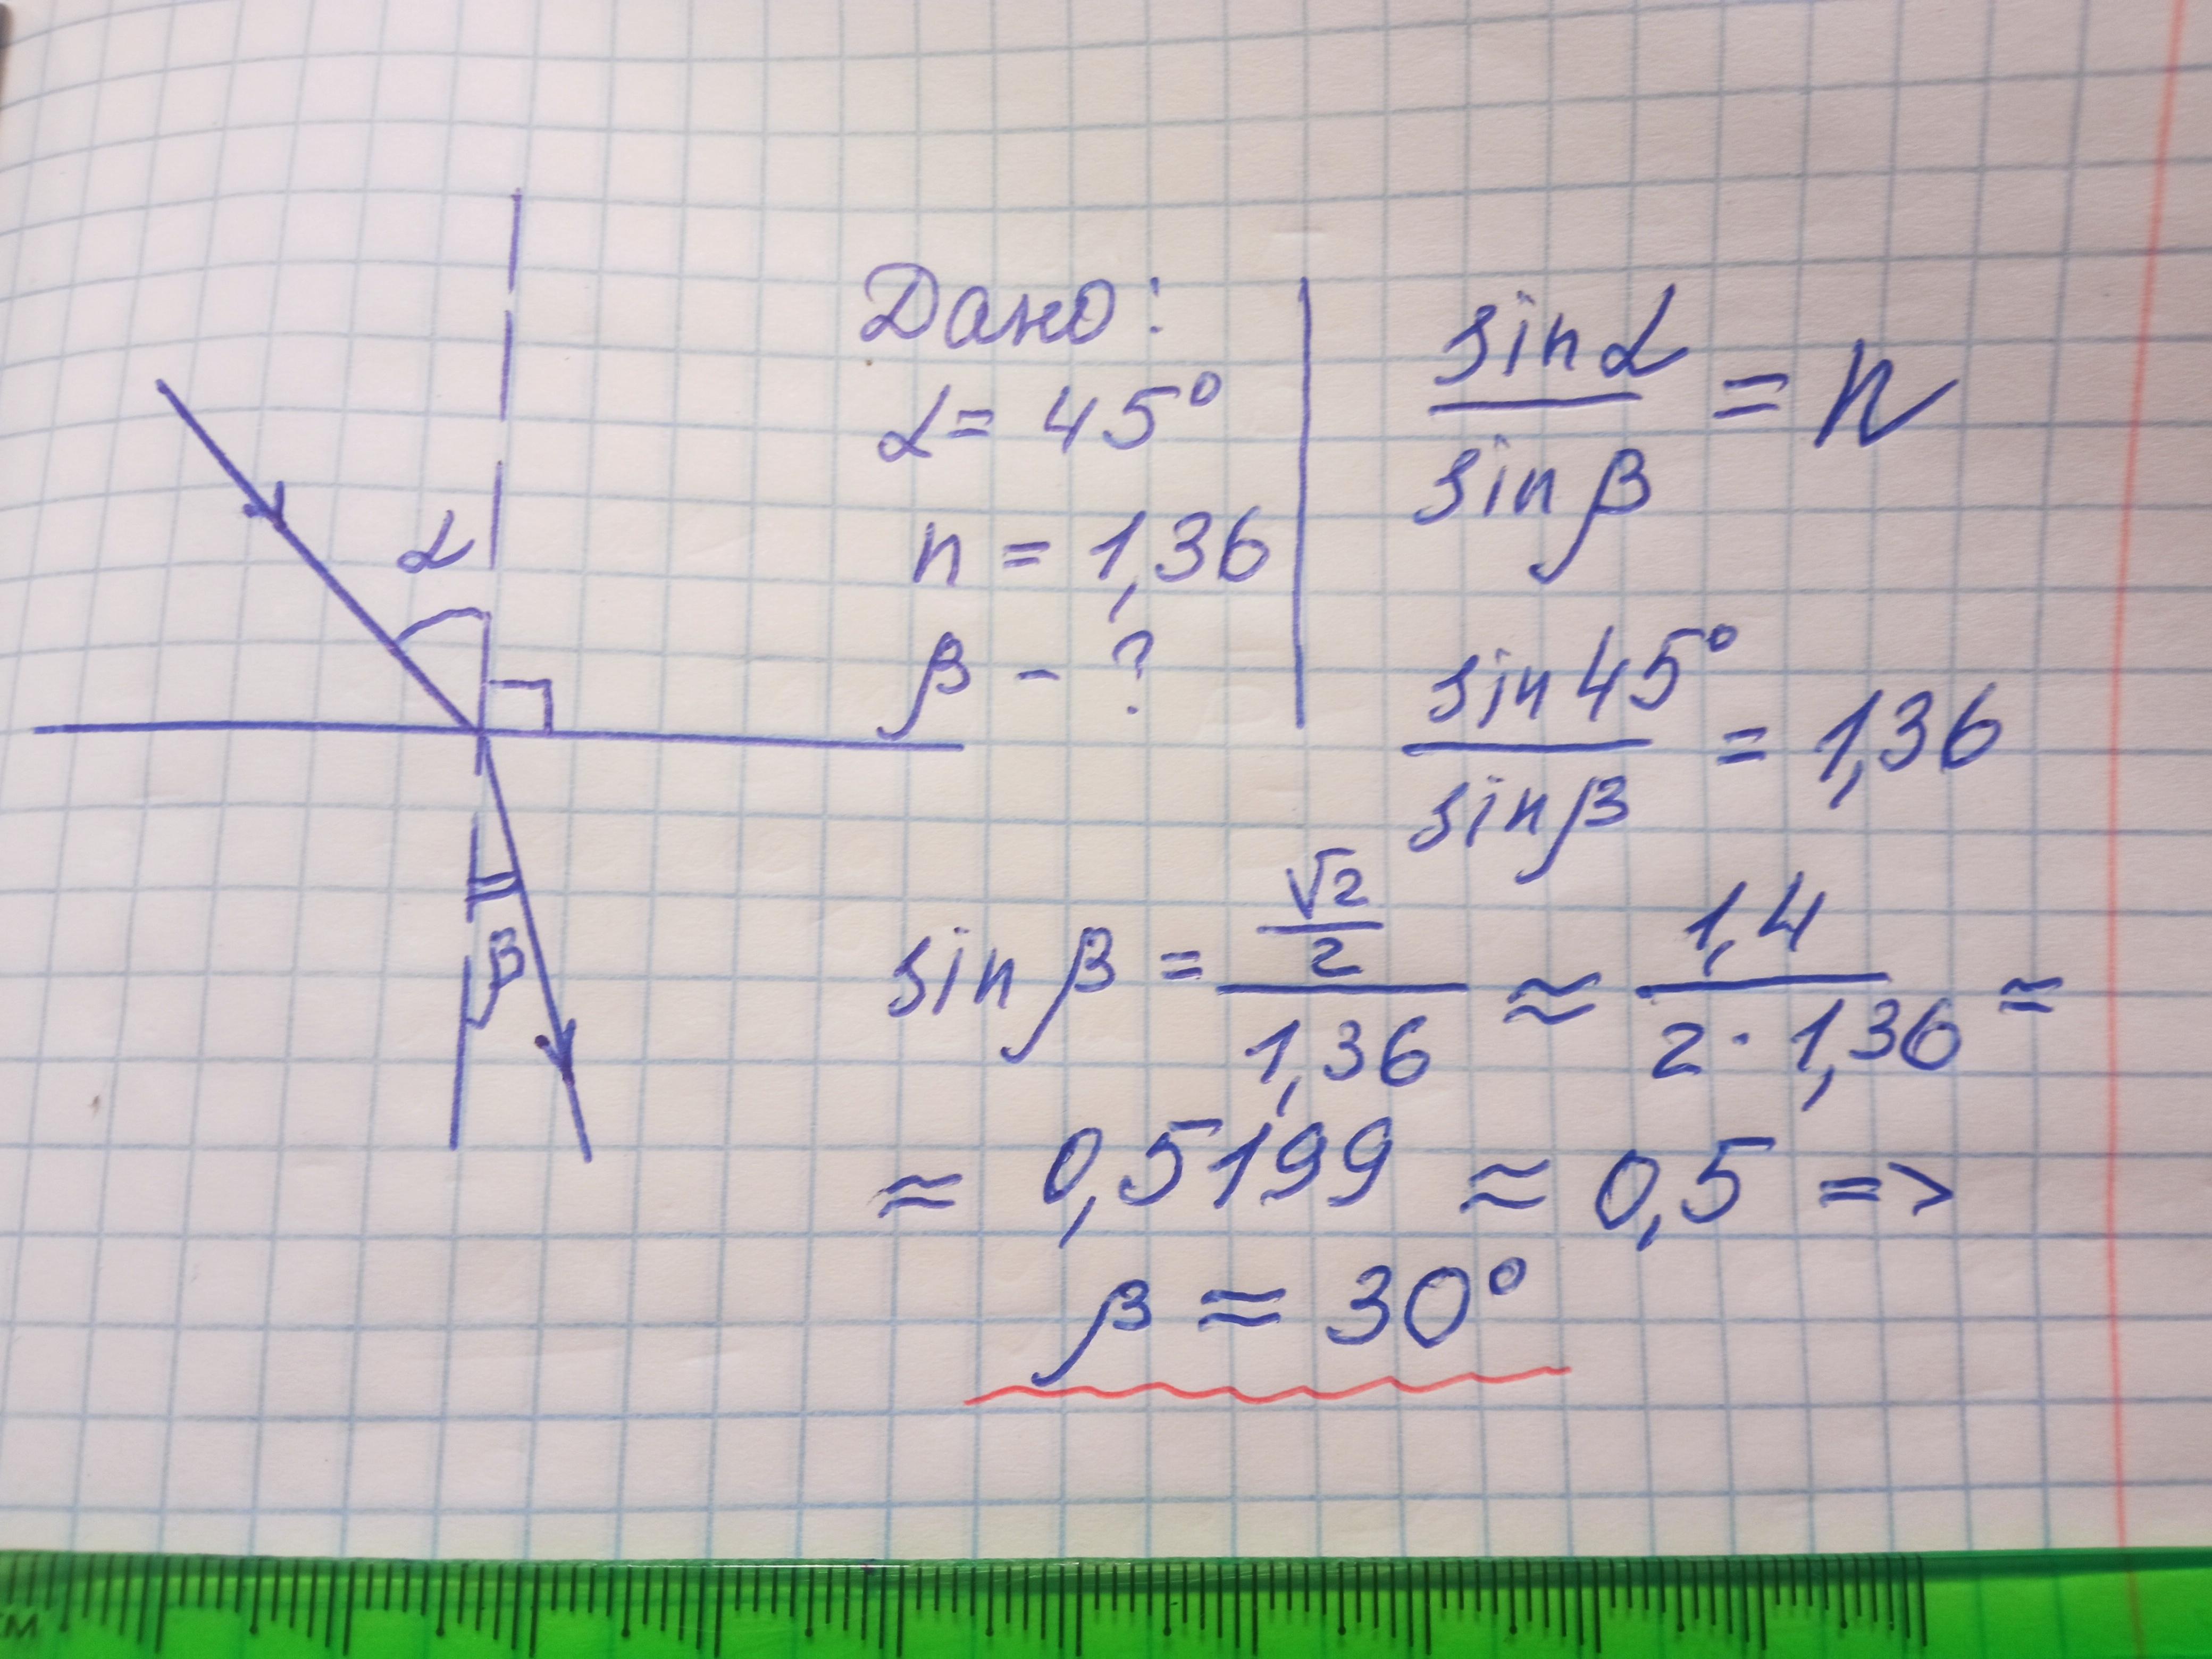 α
β
Дано:
α = 45°
n = 1,36
β - ?
sinα / sinβ = n
sin45° / sinβ = 1,36
sinβ = (√2/2) / 1,36 ≈ 1,4 / 2·1,36 ≈
≈ 0,5199 ≈ 0,5 =>
β ≈ 30°